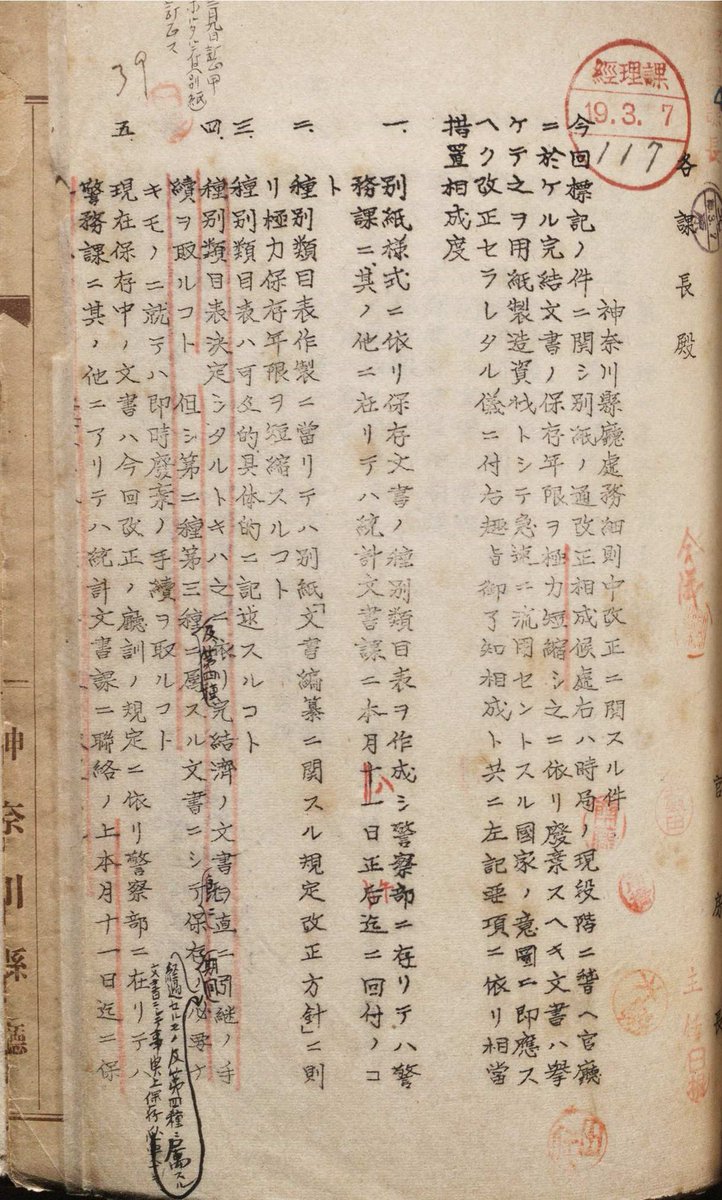 經理課
19.3.7
117
各課長殿
神奈川縣廳處務細則中改正ニ関スル件
今回標記ノ件ニ関シ別紙ノ通改正相成候處右ハ時局ノ現段階ニ鑑ヘ官廳
ニ於ケル完結文書ノ保存年限ヲ極力短縮シ之ニ依リ廢棄スヘキ文書ハ挙
ケテ之ヲ用紙製造資材トシテ急速ニ流用セントスル國家ノ意圖ニ即應ス
ヘク改正セラレタル儀ニ付右趣旨御了知相成ト共ニ左記要項ニ依リ相當
措置相成度
一、別紙様式ニ依リ保存文書ノ種別類目表ヲ作成シ警察部ニ存リテハ警
務課ニ、其ノ他ニ在リテハ統計文書課ニ本月十一日正后迄ニ回付ノコ
ト
八
午
二、種別類目表作製ニ當リテハ別紙「文書編纂ニ関スル規定改正方針」ニ則
リ極力保存年限ヲ短縮スルコト
三、種別類目表ハ可及的具体的ニ記述スルコト
四、種別類目表決定シタルトキハ之ニ依リ完結濟ノ文書ヲ直ニ引継ノ手
續ヲ取ルコト 但シ第二種第三種ニ屬スル文書ニシテ保存ノ必要ナ
及第四種
期間
経過セルモノ及第四種ニ屬スル
文書ニシテ事実上保存ノ必要
キモノニ就テハ即時廢棄ノ手續ヲ取ルコト
五、現在保存中ノ文書ハ今回改正ノ廳訓ノ規定ニ依リ警察部ニ在リテハ
警務課ニ其ノ他ニアリテハ統計文書課ニ聯絡ノ上本月十一日迄ニ保
39
神奈川縣廳